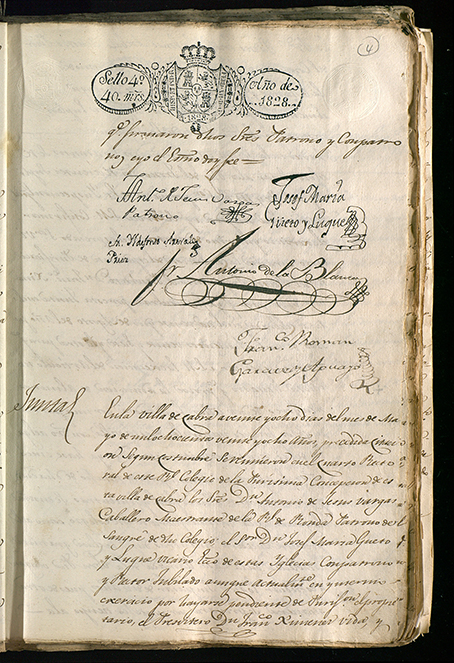 4
Sello 4º
40. mrs.
Año de
1828.
qe. firmaron dhos Sres. Patrono y Conpatro
no, y yo el Esno doy fe =
Ant. de Jesus Vargas
Patrono
Josef Maria
Gueto y Luque
Fr. Ildefonso
Prior
Fr. Antonio de la Blanca
Franco. Roman
Junta
En la villa de cabra a veinte y ocho dias del mes de Ma
yo de mil ochocientos veinte y ocho años, precedida citacion
segun costumbre Se reunieron en el cuarto Recto
ral de este Rl. Colegio de la Purisima Concepcion de es
ta villa de cabra los Sres. Dn. Antonio de Jesus Vargas
Caballero Maestrante de la Rl. de Ronda Patrono de
Sangre de dho Colegio el Sor. Dn. Josef Maria Gueto
y Luque vicario de estas Iglesias Conpatrono
y Rector Jubilado aunque actualmte. en
exercicio por hayarse pendiente de el propie
tario, el Presvitero Dn. Franco. Ximenez Vida, y